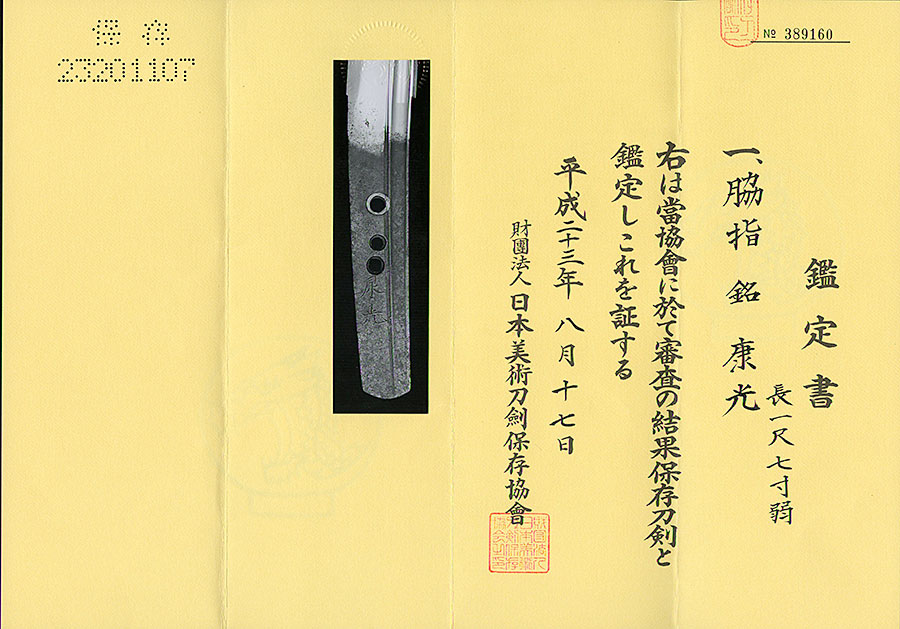 № 389160
鑑定書
一、脇指 銘 康光
長一尺七寸弱
右は當協會に於て審査の結果保存刀剣と
鑑定しこれを証する
平成二十三年 八月十七日
財團法人日本美術刀劍保存協會
康光
保存
23201107